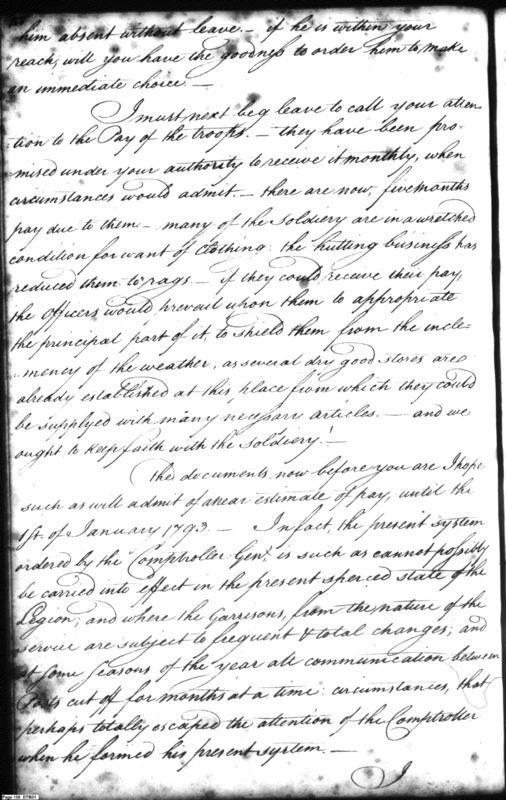 him absent without leave. — if he is within your
reach, will you have the goodness to order him to make
an immediate choice. —
I must next beg leave to call your atten-
tion to the Pay of the troops. — they have been pro
mised under your authority to receive it monthly, when
circumstances would admit. — there are now, five months
pay due to them — many of the Soldiery are in a wretched
condition for want of Clothing: the hutting business has
reduced them to rags. — if they could receive their pay,
the Officers would prevail upon them to appropriate
the principal part of it, to shield them from the incle-
mency of the weather, as several dry good stores are
already established at this place from which they could
be supplyed with many necessary articles. — and we
ought to keep faith with the Soldiery! —
The documents now before you are I hope
such as will admit of a near estimate of pay, until the
1st. of January 1793 — In fact, the present system
ordered by the Comptroller Genl. is such as cannot possibly
be carried into effect in the present sperced state of the
Legion; and where the Garrisons, from the nature of the
service are subject to frequent & total changes; and
at some seasons of the year all communication between
Posts cut off for months at a time: circumstances, that
perhaps totally escaped the attention of the Comptroller
when he formed his present system. —
I
Page 158